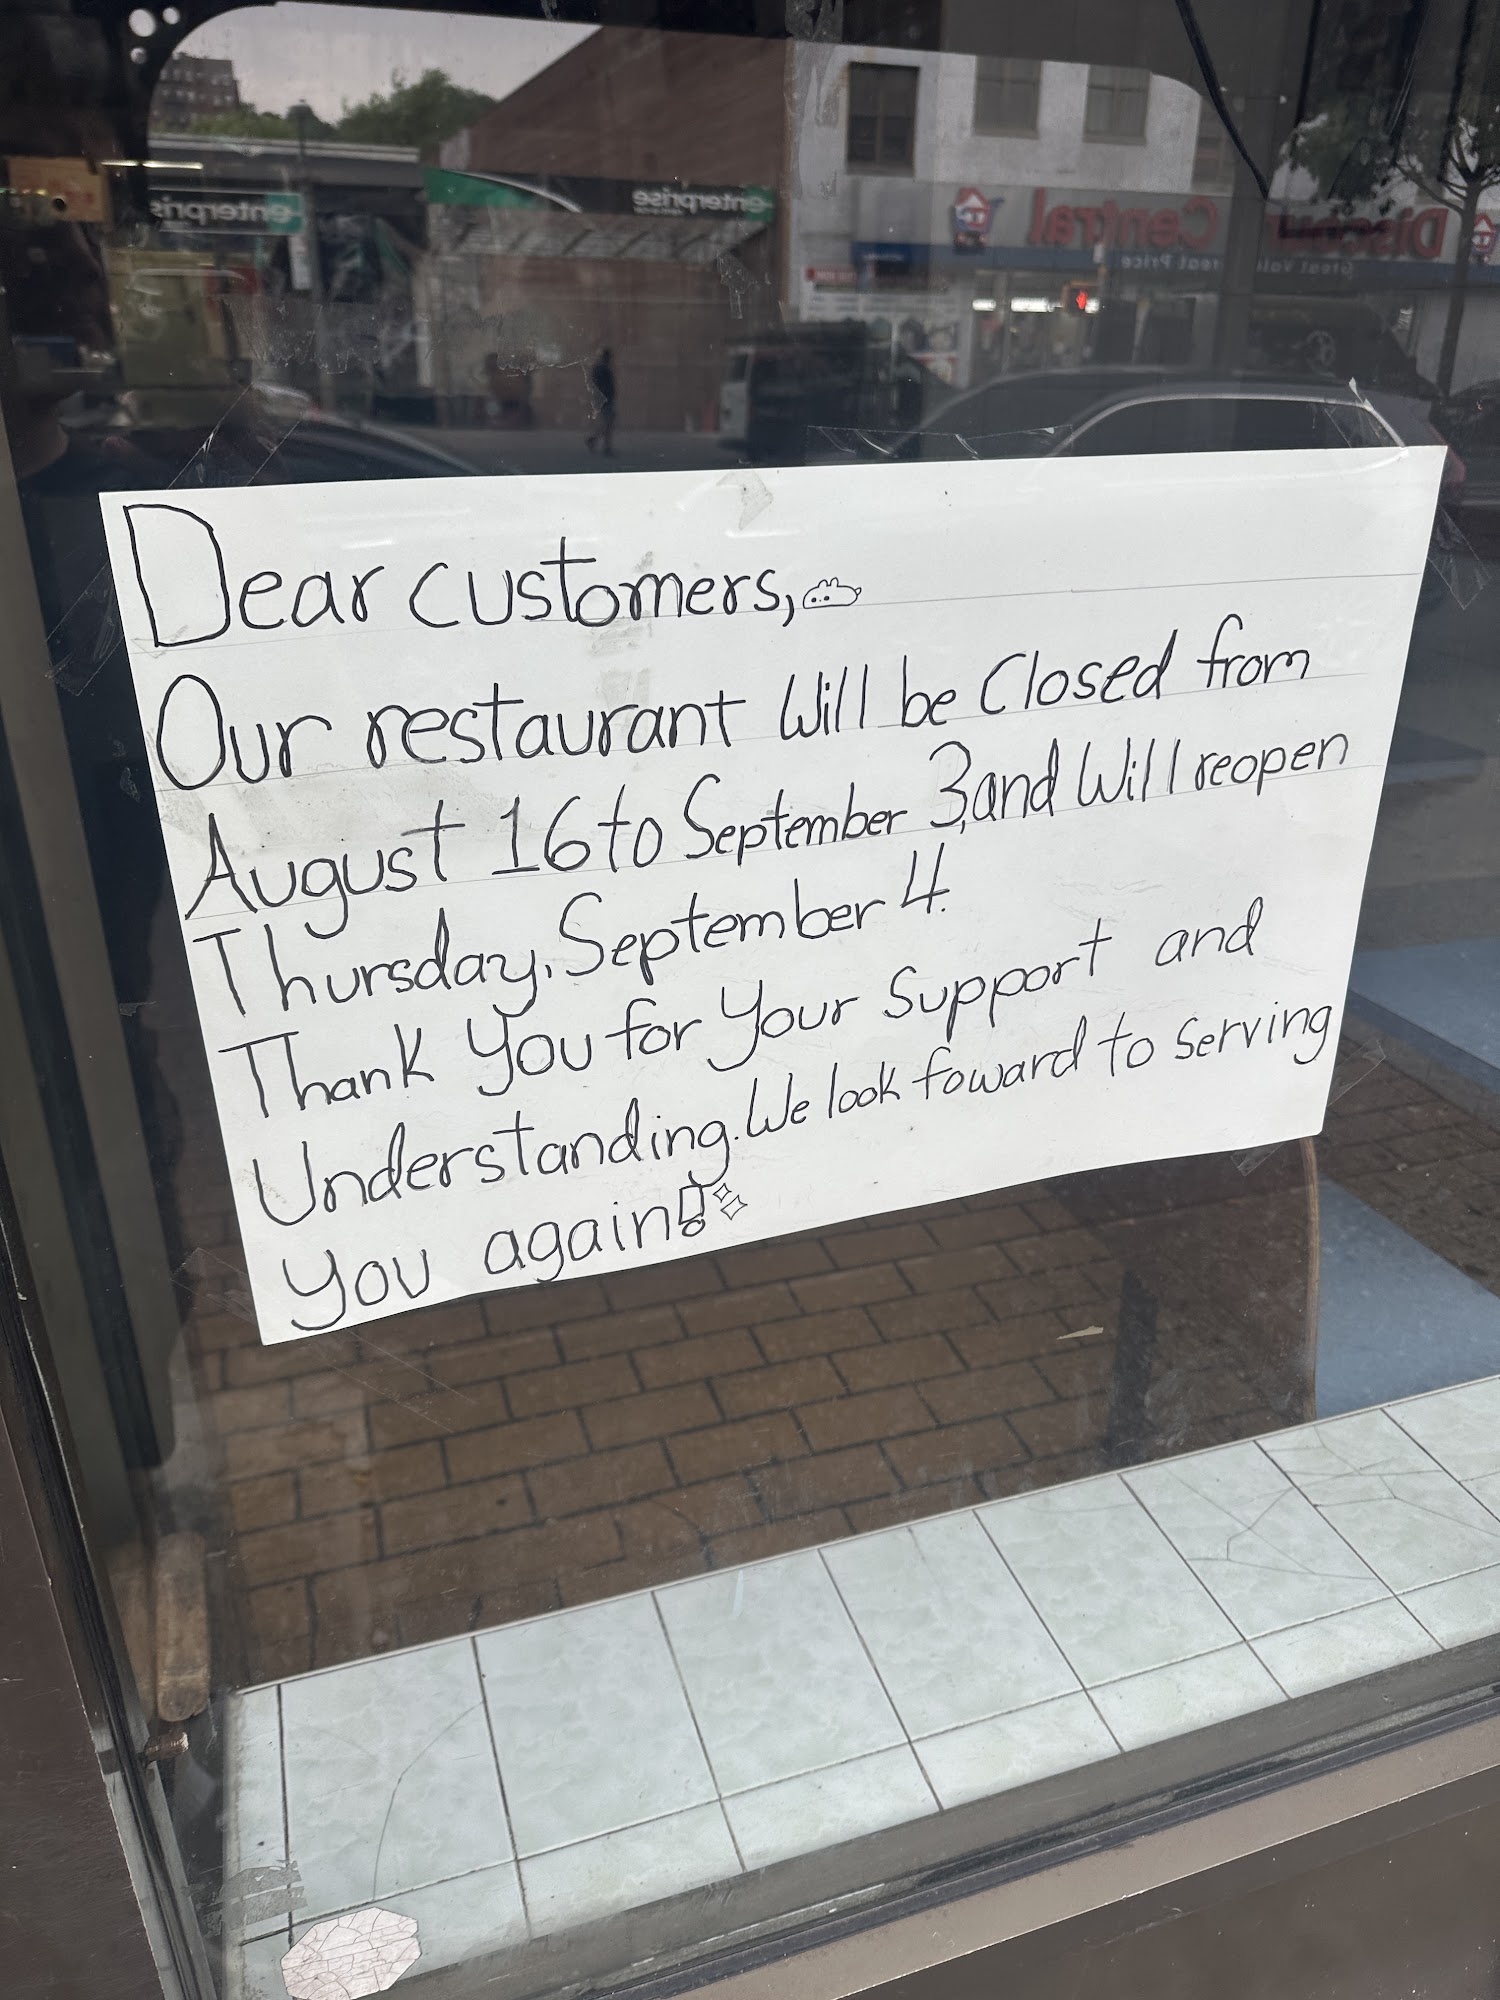 enterprise
enterprise
Discount Central
Great Value Great Price
Dear customers,
Our restaurant will be closed from
August 16 to September 3, and will reopen
Thursday, September 4.
Thank you for your support and
Understanding. We look foward to serving
you again!